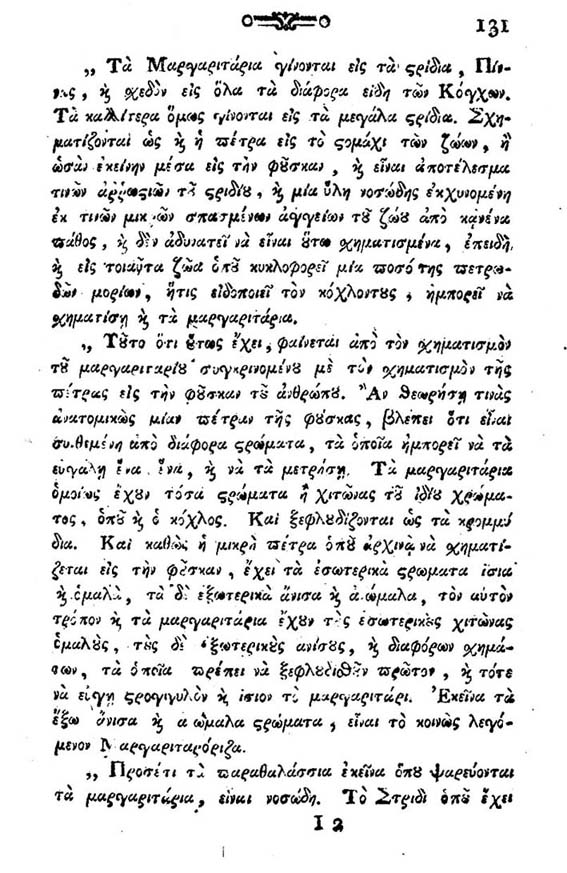 131
„ Τὰ Μαργαριτάρια γίνονται εἰς τὰ ϛρίδια, Πίν-
νας, ϗ χεδὸν εἰς ὅλα τὰ διάφορα εἴδη τῶν Κόγχων.
Τὰ καλλίτερα ὅμως γίνονται εἰς τὰ μεγάλα ϛρίδια. Σχη-
ματίζονται ὡς ϗ ἡ πέτρα εἰς τὸ ϛομάχι τῶν ζώων, ἢ
ὡσὰν ἐκείνην μέσα εἰς τὴν φȣ͂σκαν, ϗ εἶναι ἀποτέλεσμα
τινῶν ἀῤῥωϛιῶν τȣ͂ ϛριδίȣ, ϗ μία ὕλη νοσώδης ἐκχυνομένη
ἐκ τινῶν μικρῶν σπασμένων ἀγγείων τȣ͂ ζώȣ ἀπὸ κᾀνένα
πάθος, ϗ δὲν ἀδυνατεῖ νὰ εἶναι ȣ῞τω χηματισμένα, ἐπειδὴ
ϗ εἰς τοιαῦτα ζῶα ὁπȣ͂ κυκλοφορεῖ μία ποσότης πετρω-
δῶν μορίων, ἥτις εἰδοποιεῖ τὸν κόχλοντȣς, ἠμπορεῖ νὰ
χηματίσῃ ϗ τὰ μαργαριτάρια.
„ Τȣ͂το ὅτι ȣ῞τως ἔχει, φαίνεται ἀπὸ τὸν χηματισμὸν
τȣ͂ μαργαριταρίȣ συγκρινομένȣ μὲ τὸν χηματισμὸν τῆς
πέτρας εἰς τὴν φȣ͂σκαν τȣ͂ ἀνθρώπȣ. Ἂν θεωρήσῃ τινὰς
ἀνατομικῶς μίαν πέτραν τῆς φȣ́σκας, βλέπει ὅτι εἶναι
συνθεμένη ἀπὸ διάφορα ϛρώματα, τὰ ὁποῖα ἠμπορεῖ νὰ τὰ
εὐγάλῃ ἕνα ἕνα, ϗ νὰ τὰ μετρήσῃ. Τὰ μαργαριτάρια
ὁμοίως ἔχȣν τόσα ϛρώματα ἢ χιτῶνας τȣ͂ ἰδίȣ χρώμα-
τος, ὁπȣ͂ ϗ ὁ κόχλος. Καὶ ξεφλȣδίζονται ὡς τὰ κρομμύ
δια. Καὶ καθὼς ἡ μικρὴ πέτρα ὁπȣ͂ ἀρχινᾷ νὰ χηματί-
ζεται εἰς τὴν φȣ͂σκαν, ἔχει τὰ ἐσωτερικὰ ϛρώματα ἴσια
ϗ ὁμαλὰ, τὰ δὲ ἐξωτερικὰ ἄνισα ϗ ἀνώμαλα, τὸν αὐτὸν
τρόπον ϗ τὰ μαργαριτάρια ἔχȣν τὲς ἐσωτερικὲς χιτῶνας
ὁμαλȣ̀ς, τὲς δὲ ἐξωτερικȣ̀ς ἀνίσȣς, ϗ διαφόρων χημά-
των, τὰ ὁποῖα πρέπει νὰ ξεφλȣδισθȣ͂ν πρῶτον, ϗ τότε
νὰ εὔγῃ ϛρογγυλὸν ϗ ἴσιον τὸ μαργαριτάρι. Ἐκεῖνα τὰ
ἔξω ἄνισα ϗ ἀνώμαλα ϛρώματα, εἶναι τὸ κοινῶς λεγό-
μενον Μαργαριταρόριζα.
„ Προσέτι τὰ παραθαλάσσια ἐκεῖνα ὁπȣ ψαρεύονται
τὰ μαργαριτάρια, εἶναι νοσώδη. Τὸ Στρίδι ὁπȣ͂ ἔχει
I 2